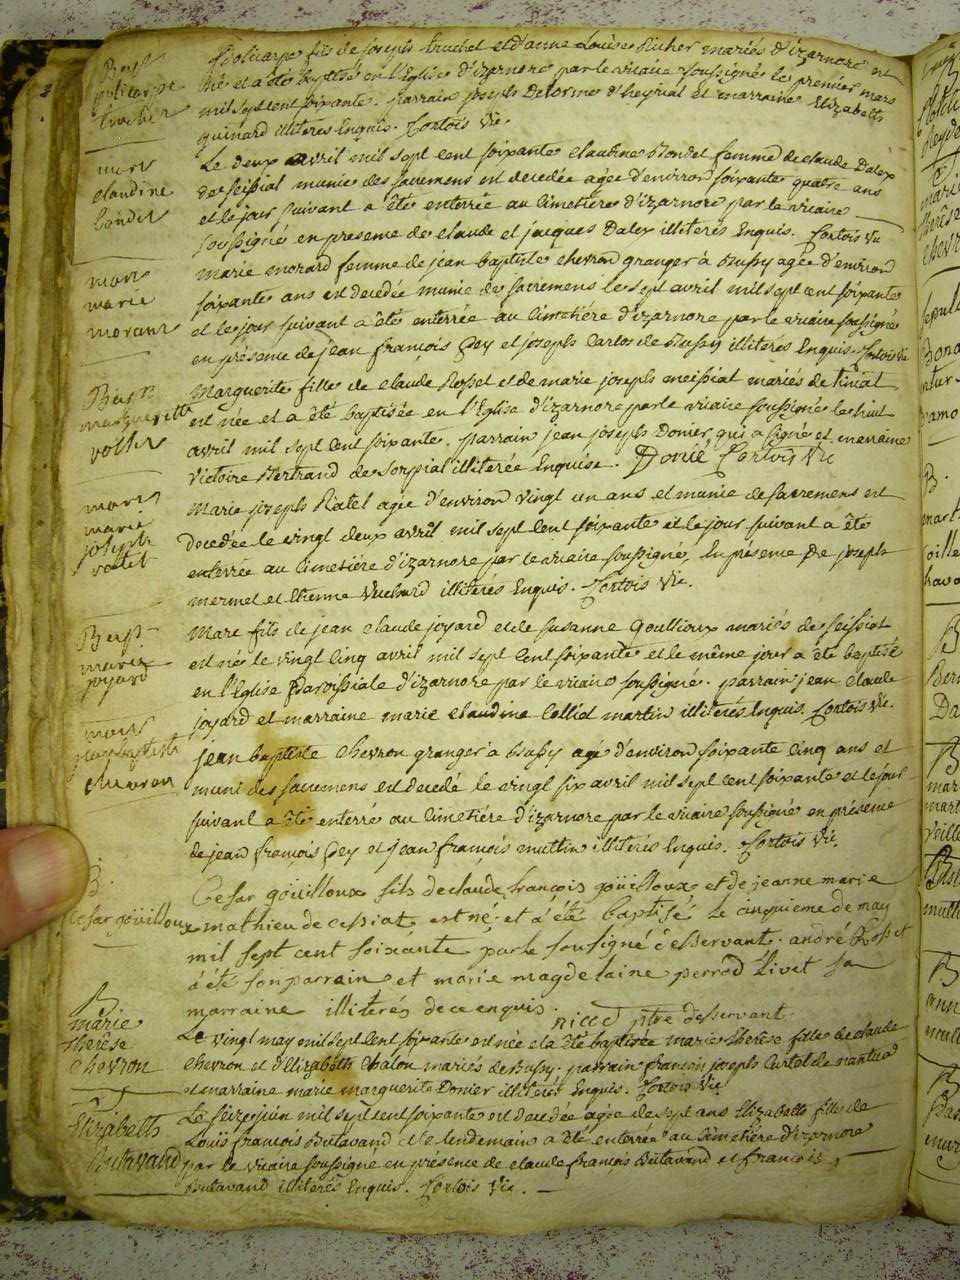 Bapt
policarpe
truchet
Policarpe fils de joseph truchet et d'anne Louise Richer mariés d'izarnore est
né et a été baptisé en l'Eglise d'izarnore par le vicaire soussigné le premier mars
mil sept cent soixante. parrain joseph Delorme d'heyriat et marraine Elizabeth
guinard illiterés Enquis. Cortois vic.
mort
claudine
Le deux avril mil sept cent soixante claudine Rondet femme de claude Dalex
de seissiat munie des sacremens est decedée agée d'environ soixante quatre ans
et le jour suivant a été enterrée au cimetière d'izarnore par le vicaire
soussigné en presence de claude et jacques Dalex illiterés Enquis. Cortois vic
mort
marie
morard
marie morard femme de jean baptiste chevron granger à Bussy agée d'environ
soixante ans est decedée munie de sacremens le sept avril mil sept cent soixante
et le jour suivant a été enterrée au cimetière d'izarnore par le vicaire soussigné
en présence de jean françois Gey et joseph Carlos de Bussy illiterés Enquis. Cortois vic
Bapt
marguerite
Marguerite fille de claude Rosset et de marie joseph meissiat mariés de tiniat
est née et a été baptisée en l'Eglise d'izarnore par le vicaire soussigné le huit
avril mil sept cent soixante. parrain jean joseph Donier qui a signé et marraine
victoire Bertrand de sorpiat illiterée Enquise. Donié Cortois vic
mort
marie
joseph
Marie joseph Ratel agée d'environ vingt un ans et munie de sacremens est
decedée le vingt deux avril mil sept cent soixante et le jour suivant a été
enterrée au cimetière d'izarnore par le vicaire soussigné, En présence de joseph
mermet et Etienne vuchard illiterés Enquis. Cortois vic.
Bapt
joyard
Marc fils de jean claude joyard et de susanne Goullioux mariés de seissiat
est né le vingt cinq avril mil sept cent soixante et le même jour a été baptisé
en l'Eglise Paroissiale d'izarnore par le vicaire soussigné. parrain jean claude
joyard et marraine marie claudine Colliet martin illiterés Enquis. Cortois vic.
mort
jean baptiste
chevron
jean baptiste chevron granger à Bussy agé d'environ soixante cinq ans et
muni des sacremens est decedé le vingt six avril mil sept cent soixante et le jour
suivant a été enterré au cimetière d'izarnore par le vicaire soussigné en présence
de jean françois Gey et jean françois muttin illiterés Enquis. Cortois vic.
B.
Cesar goüilloux
Cesar goüilloux fils de claude françois goüilloux et de jeanne marie
mathieu de cessiat est né et a été baptisé le cinquieme de may
mil sept cent soixante par le sousigné désservant. andré Rosset
à été son parrain et marie magdelaine perrod Livet sa
marraine illiterés de ce enquis.
nilled ptre desservant
B
marie
thérèse
chevron
Le vingt may mil sept cent soixante est née et a été baptisée marie thérèse fille de claude
chevron et d'Elizabeth Chalon mariés de Bussy. parrain françois joseph Curtet de nantua
et marraine marie marguerite Donier illiterés Enquis. Cortois vic
Elizabeth
Butavand
Le seize juin mil sept cent soixante est decedée agée de sept ans Elizabeth fille de
Louis françois Butavand et le lendemain a été enterrée au cimetière d'izarnore
par le vicaire soussigné en présence de claude françois Butavand et françois
Butavand illiterés Enquis. Cortois vic.